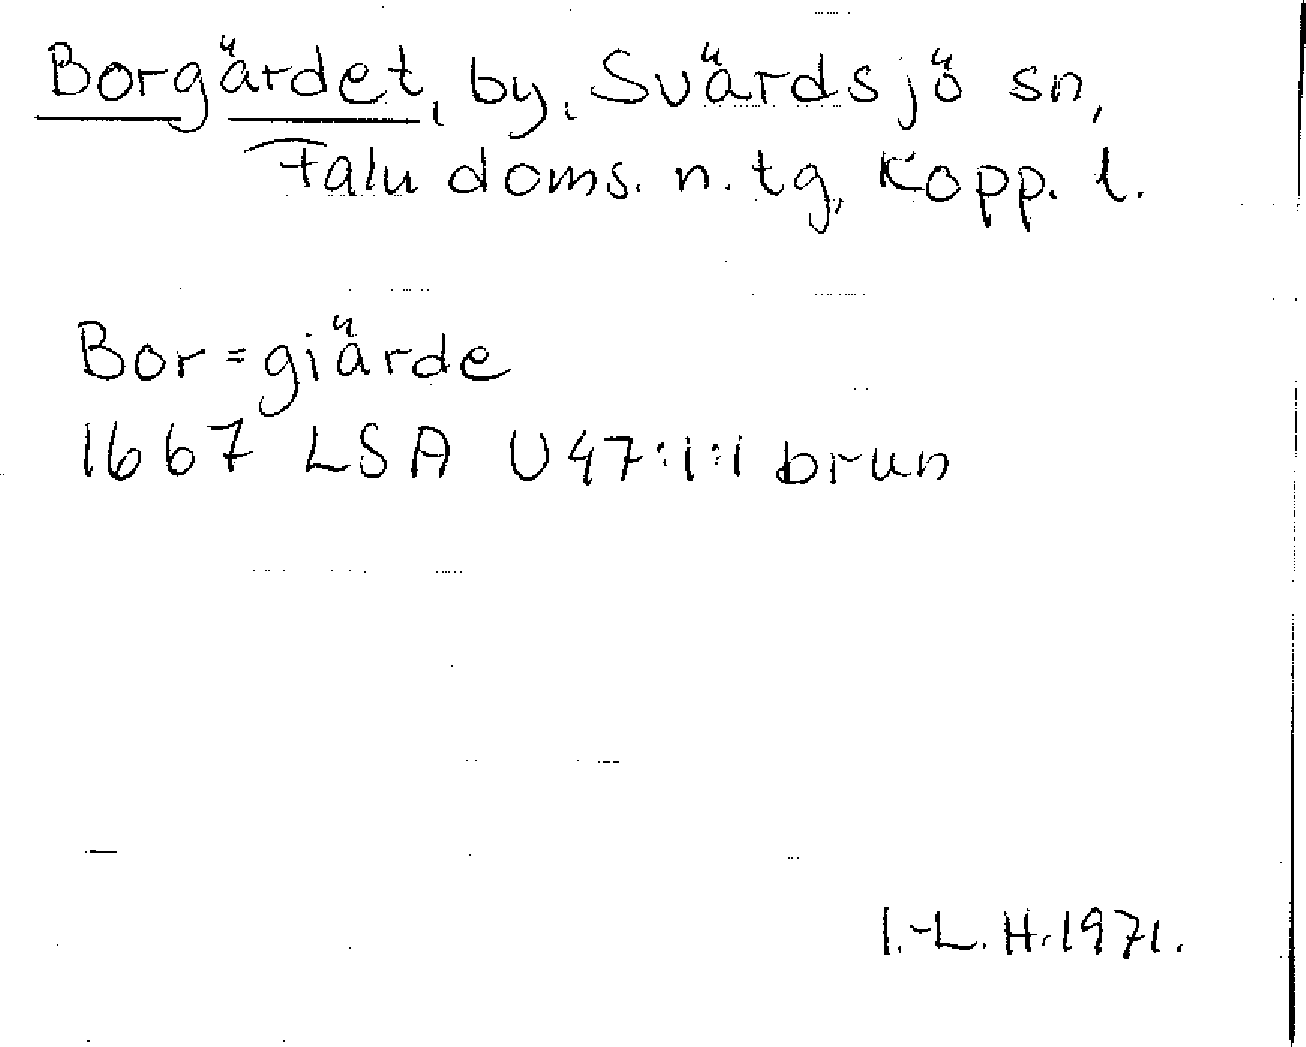 Borgärdet, by, Svärdsjö sn,
Falu doms. n. tg, Kopp. l.
Bor=giärde
1667 LSA U47:1:1 brun
I.-L. H. 1971.